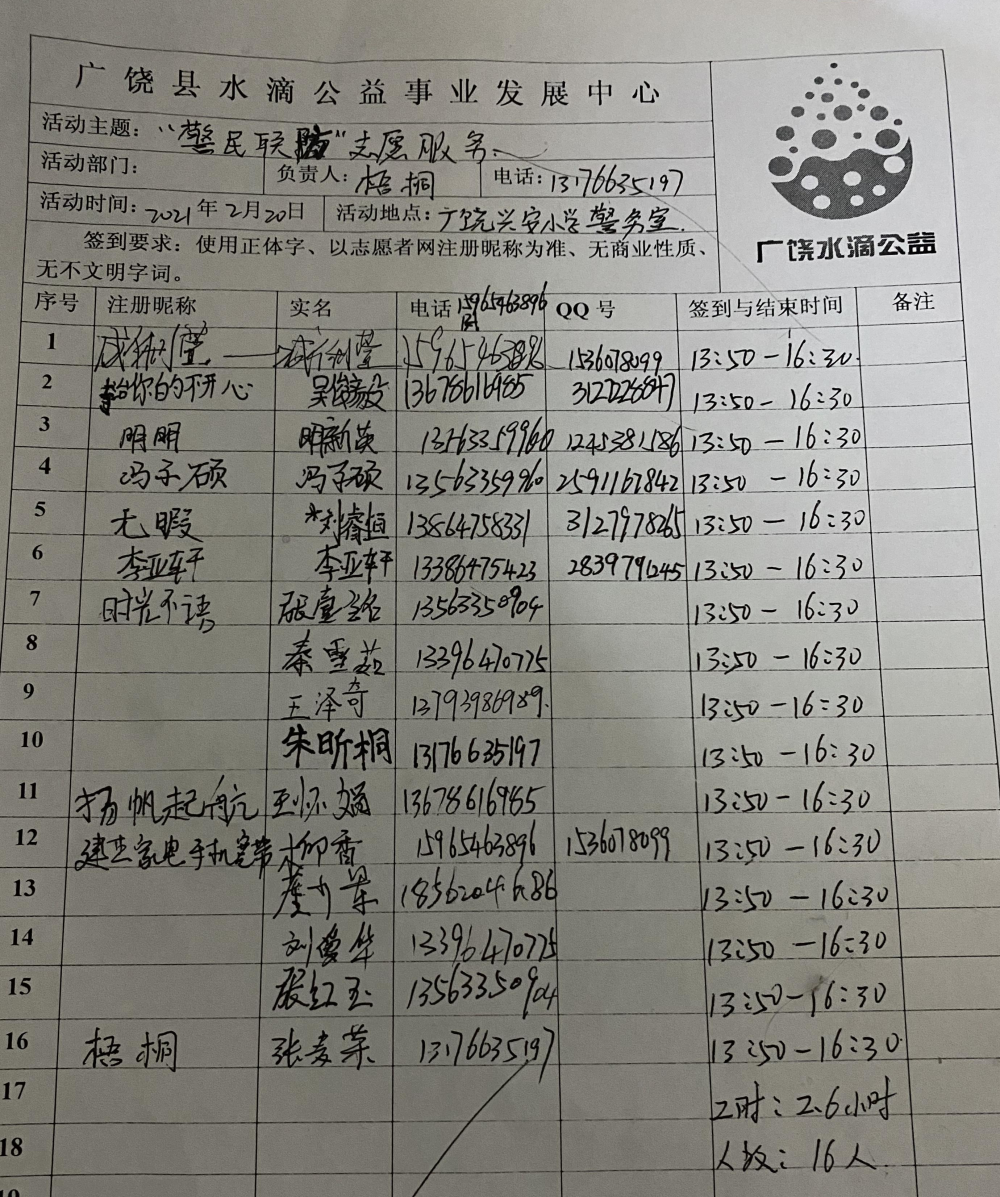 广饶县水滴公益事业发展中心
活动主题: "警民联防"志愿服务.
活动部门: 负责人: 梧桐 电话: 13176635197
活动时间: 2021年2月20日 活动地点: 广饶兴安小学警务室.
签到要求：使用正体字、以志愿者网注册昵称为准、无商业性质、
无不文明字词。
广饶水滴公益
序号 注册昵称 实名 电话 15965463896 QQ号 签到与结束时间 备注
1 15965463896 1536078099 13:50-16:30.
2 给你的不开心 13678616985 3127228847 13:50-16:30
3 明明 明新英 13563359960 1245381586 13:50-16:30
4 冯子硕 冯子硕 13563359960 2591167842 13:50-16:30
5 无暇 刘睿恒 13864758331 3127978265 13:50-16:30
6 李亚轩 李亚轩 13386475423 2839791245 13:50-16:30
7 时光不语 13563350904 13:50-16:30
8 秦雪茹 13396470775 13:50-16:30
9 王泽奇 13793986989. 13:50-16:30
10 朱昕桐 13176635197 13:50-16:30
11 扬帆起航 13678616985 13:50-16:30
12 建杰家电手机宽带 15965463896 1536078099 13:50-16:30
13 13:50-16:30
14 刘爱华 13396470775 13:50-16:30
15 殷红玉 13563350904 13:50-16:30
16 梧桐 张麦荣 13176635197 13:50-16:30.
17 工时: 2.6小时
18 人数: 16人.